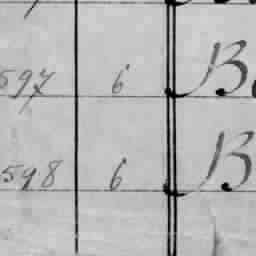 597 6 B
598 6 B